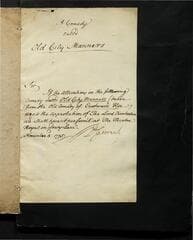 A Comedy
called
Old City Manners
Sir
If the alterations in the following
Comedy called Old City Manners (taken
from the Old Comedy of Eastward Hoe)
meet the approbation of The Lord Chamberlain
we shall have it perform'd at the Theatre
Royal in Drury Lane.
November 5. 1775